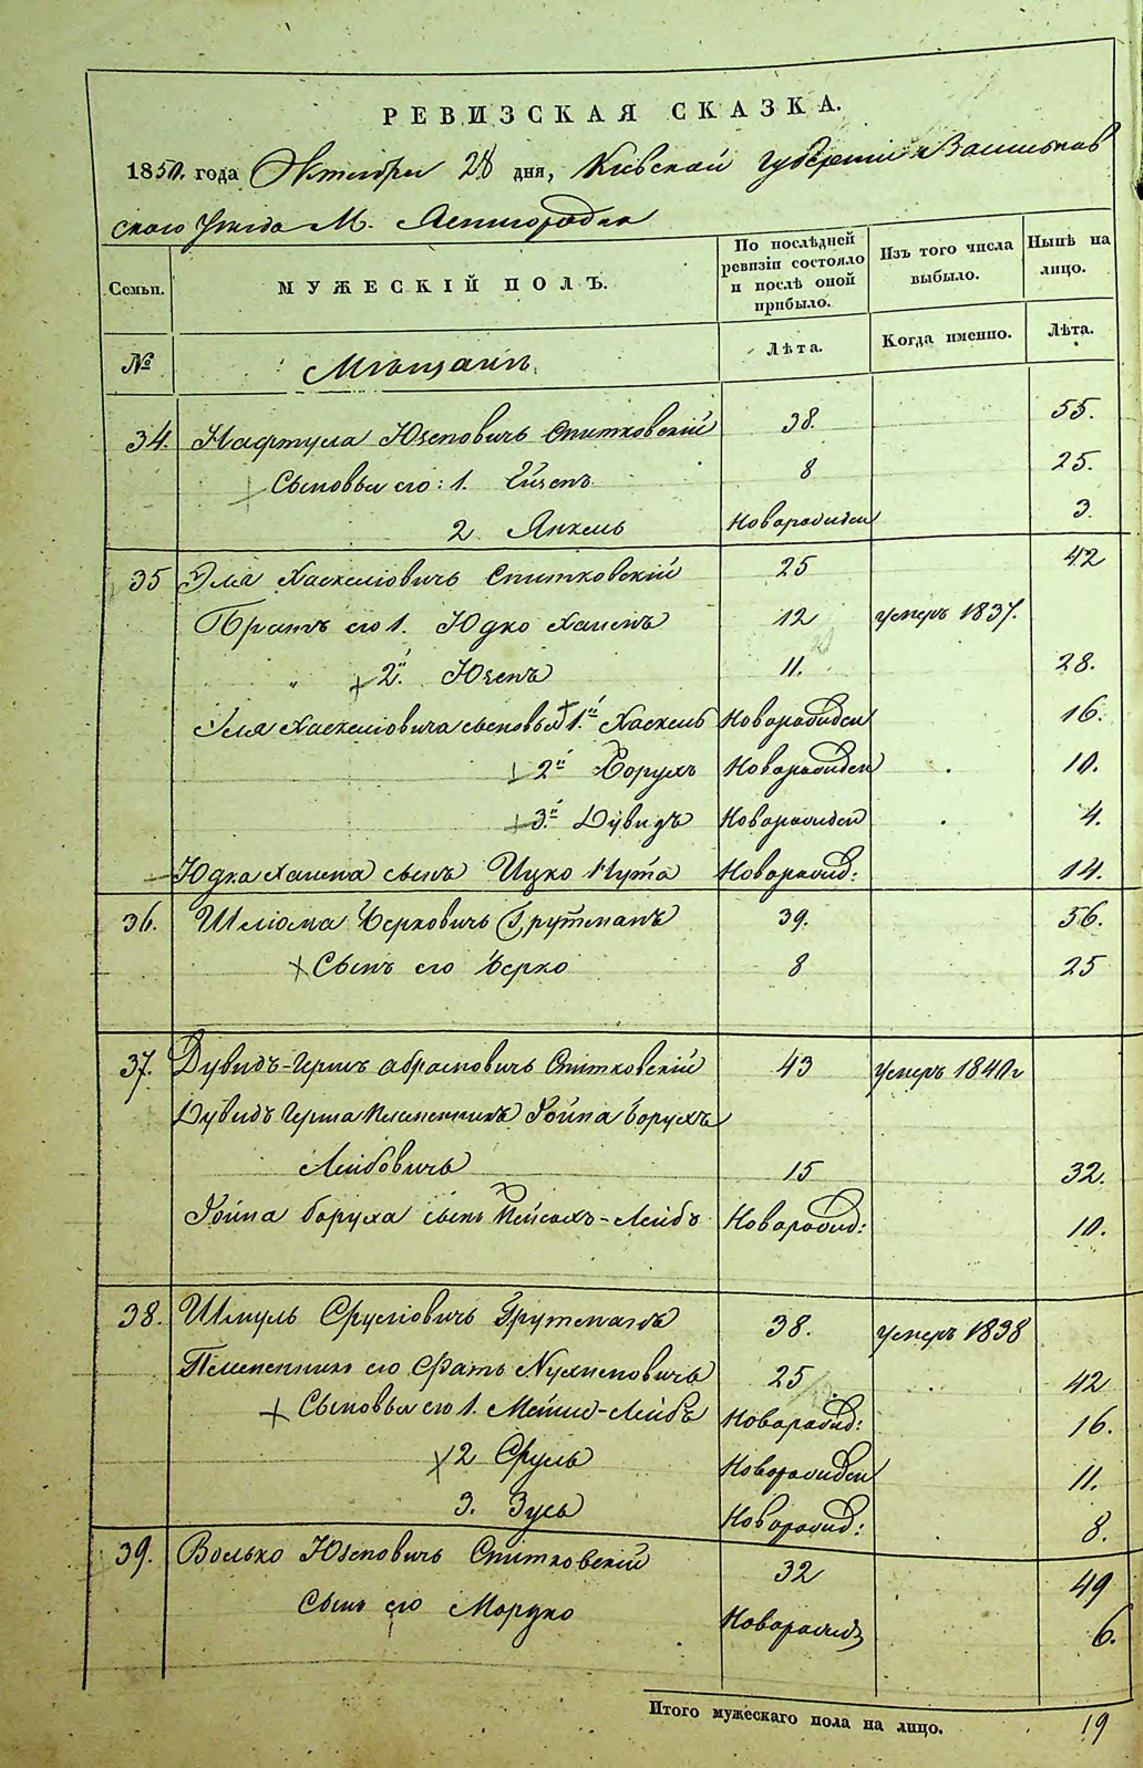 РЕВИЗСКАЯ СКАЗКА.
1850. года Октября 28 дня, Кіевской Губерніи Васильков
ского Уезда М. Ясногородка
Семьи. МУЖЕСКІЙ ПОЛЪ. По послѣдней ревизіи состояло и послѣ оной прибыло. Изъ того числа выбыло. Нынѣ на лицо.
№ Мѣщанъ. Лѣта. Когда именно. Лѣта.
34. Нафтула Юзеповичъ Спитковскій 38. 55.
Сыновья его: 1. 8 25.
2. Янкель Новорожден 3.
35 Эля Хаскеліовичъ Спитковскій 25 42
Братъ его 1. Юдко Хаимъ 12 умеръ 1837.
" 2й. Юзепъ 11. 28.
Эля Хаскеліовича сыновья 1.й Хаскель Новорожден 16.
2й Борухъ Новорожден 10.
3.й Дувидъ Новорожден 4.
Юдка Хаима сынъ Ицко Нута Новорожд: 14.
36. Шліома Берковичъ Грутманъ 39. 56.
Сынъ его Берко 8 25
37. Дувидъ-Гершъ Абрамовичъ Спитковскій 43 умеръ 1840 г
Дувидъ Герша племенникъ Іойна Борухъ
Лейбовичъ 15 32.
Іойна Боруха сынъ Пейсахъ-Лейбъ Новорожд: 10.
38. Шмуль Сруліовичъ Грутманъ 38. умеръ 1838
Племенник его Срать Нухимовичъ 25 42
Сыновья его 1. Мейше-Лейбъ Новорожд: 16.
2 Сруль Новорожден 11.
3. Зусь Новорожд: 8.
39. Волько Юзеповичъ Спитковскій 32 49
Сынъ его Мордко Новорожд 6.
Итого мужескаго пола на лицо. 19